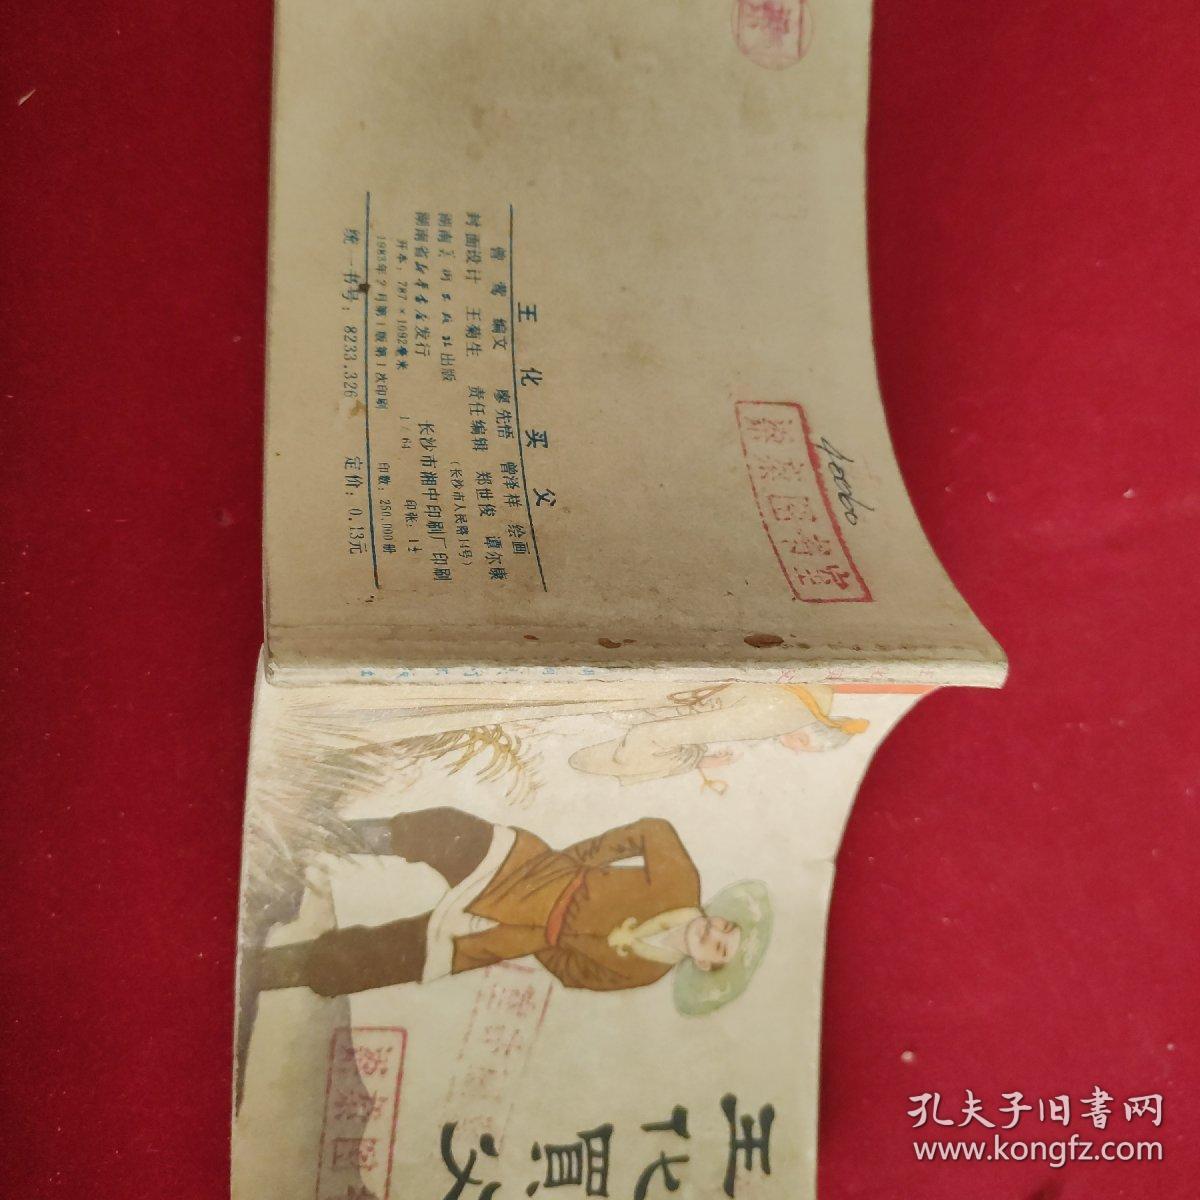 王化买父
曾莺 编文 廖先悟 曾泽祥 绘画
封面设计 王菊生 责任编辑 郑世俊 谭尔康
湖南美术出版社出版 (长沙市人民路14号)
湖南省新华书店发行 长沙市湘中印刷厂印刷
开本:787×1092毫米 1/64 印张:1¼
1983年2月第1版第1次印刷 印数:250,000册
统一书号:8233.326 定价:0.13元
王化買父
孔夫子旧書网
www.kongfz.com